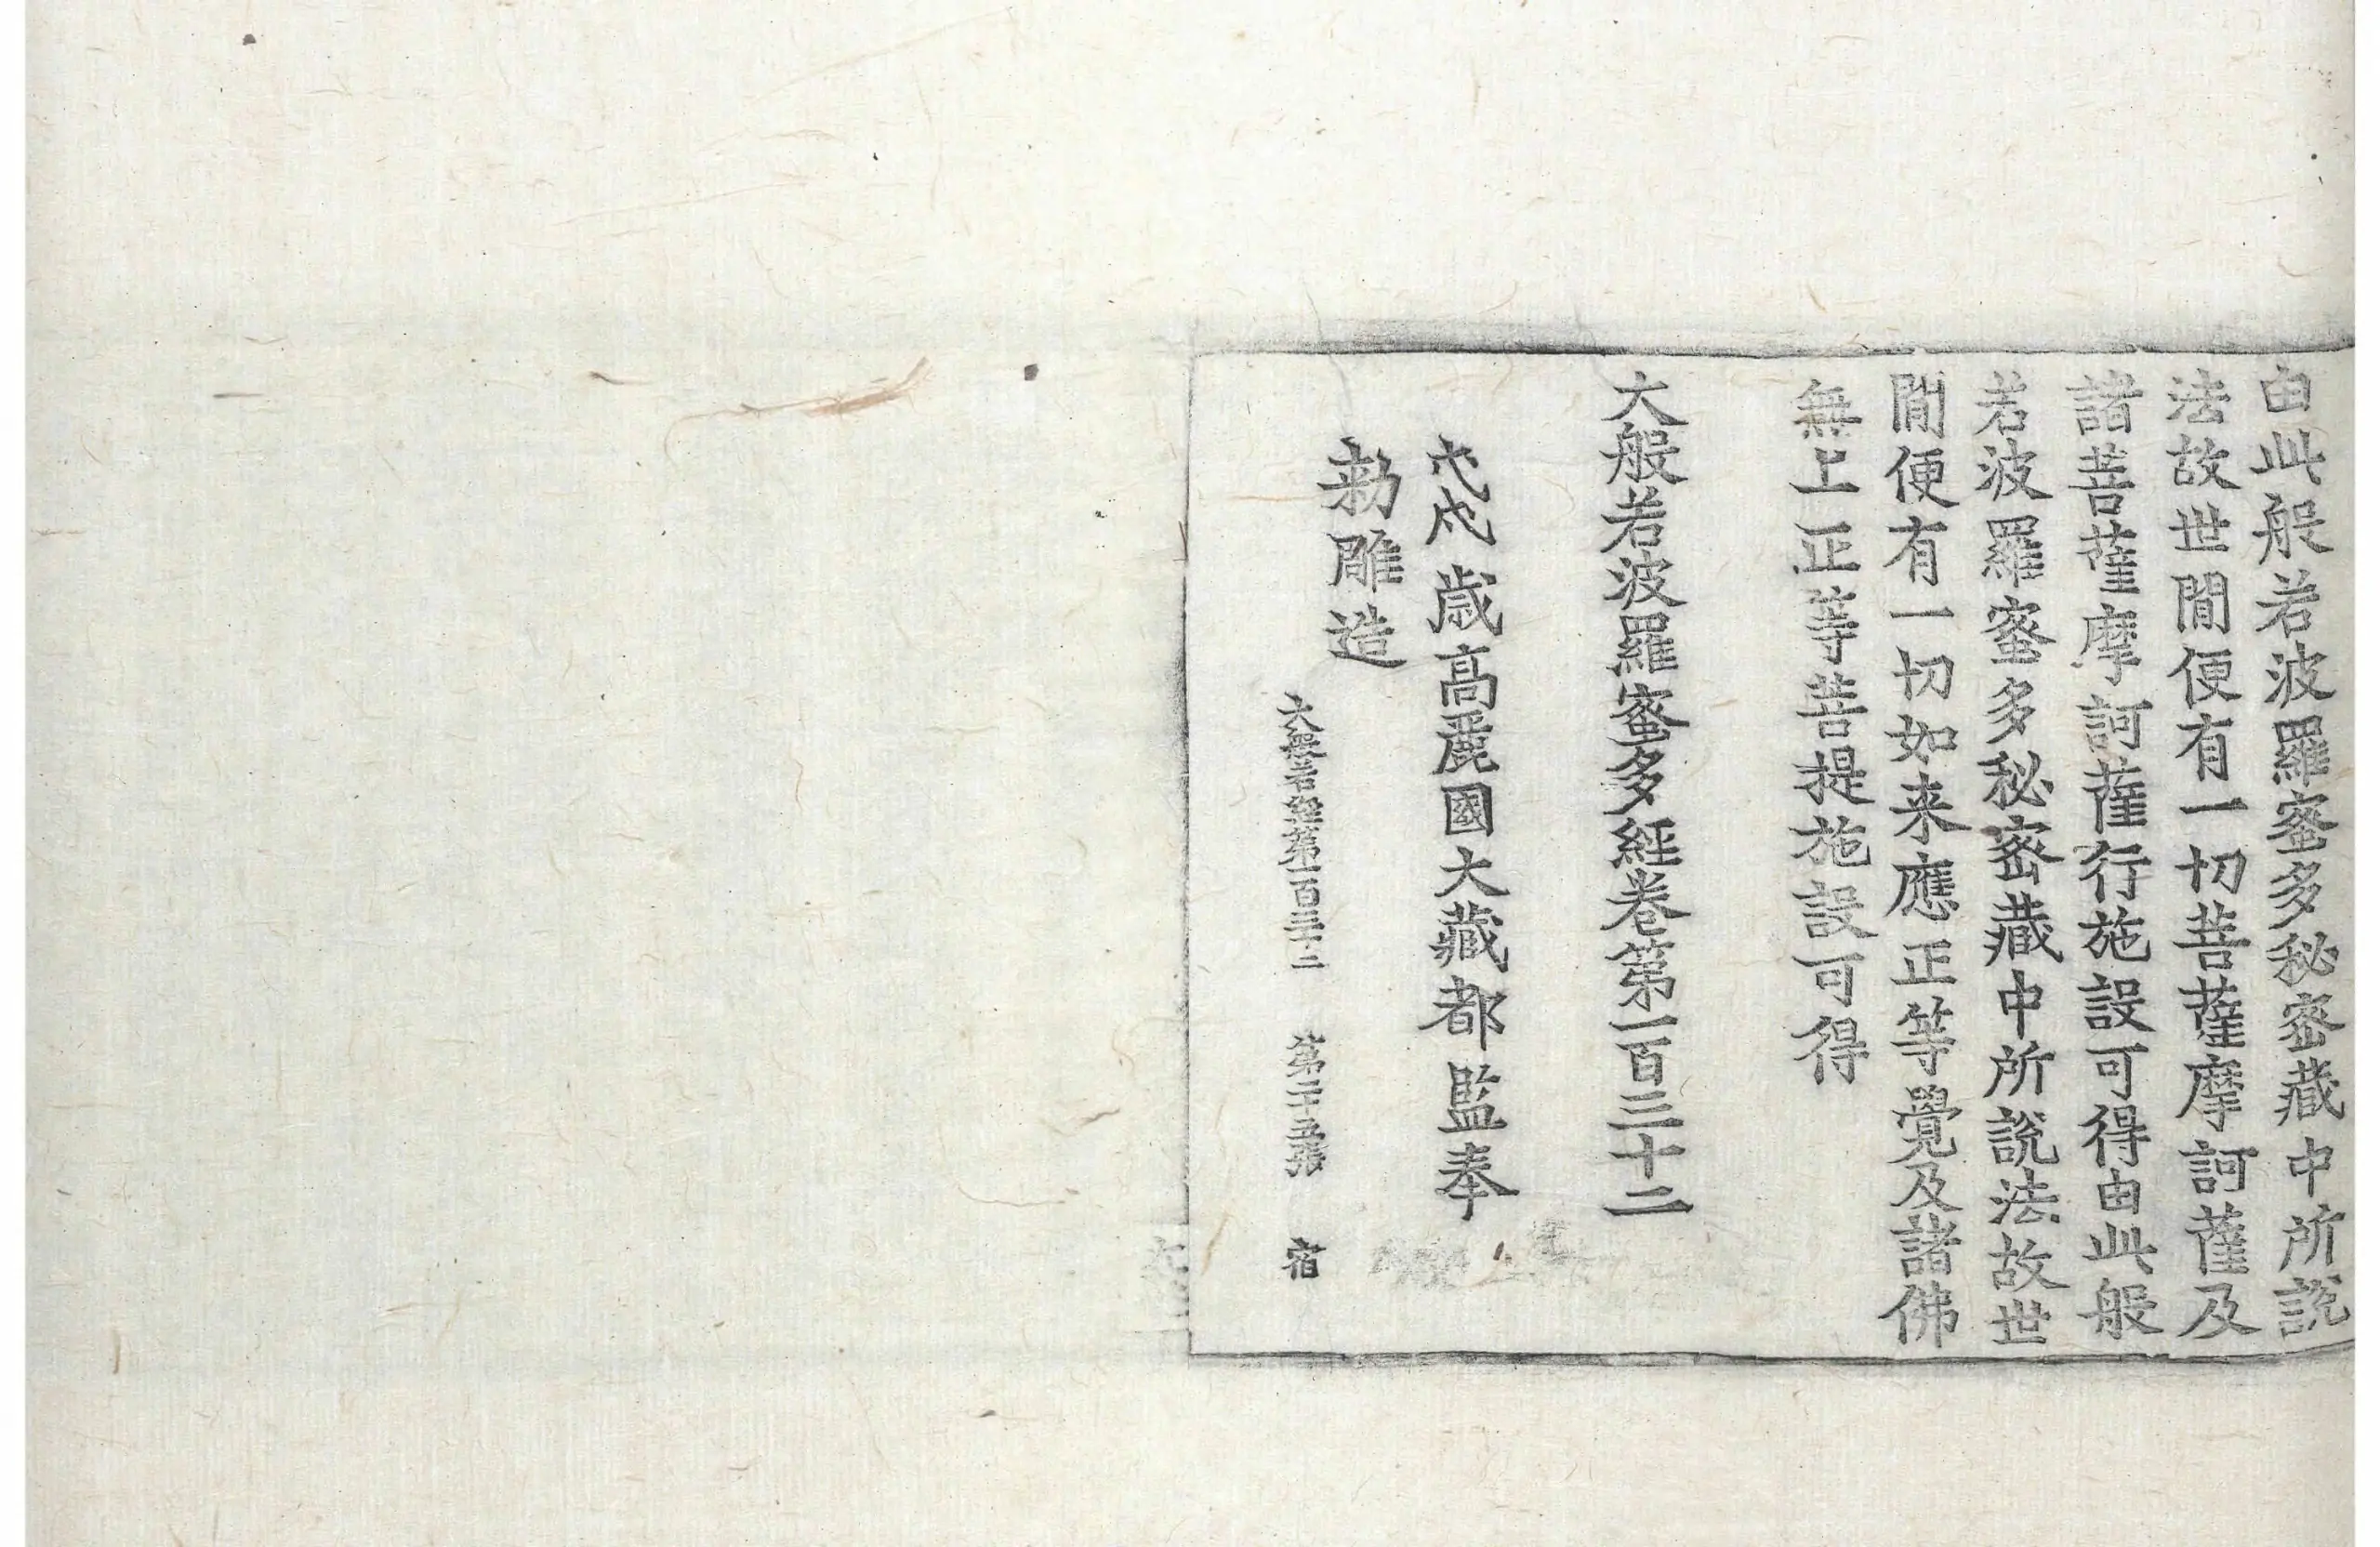 由此般若波羅蜜多秘密藏中所說
法故世間便有一切菩薩摩訶薩及
諸菩薩摩訶薩行施設可得由此般
若波羅蜜多秘密藏中所說法故世
間便有一切如来應正等覺及諸佛
無上正等菩提施設可得
大般若波羅蜜多經卷第一百三十二
戊戌歳高麗國大藏都監奉
勑雕造
大般若經第一百三十二 第二十五張 宿